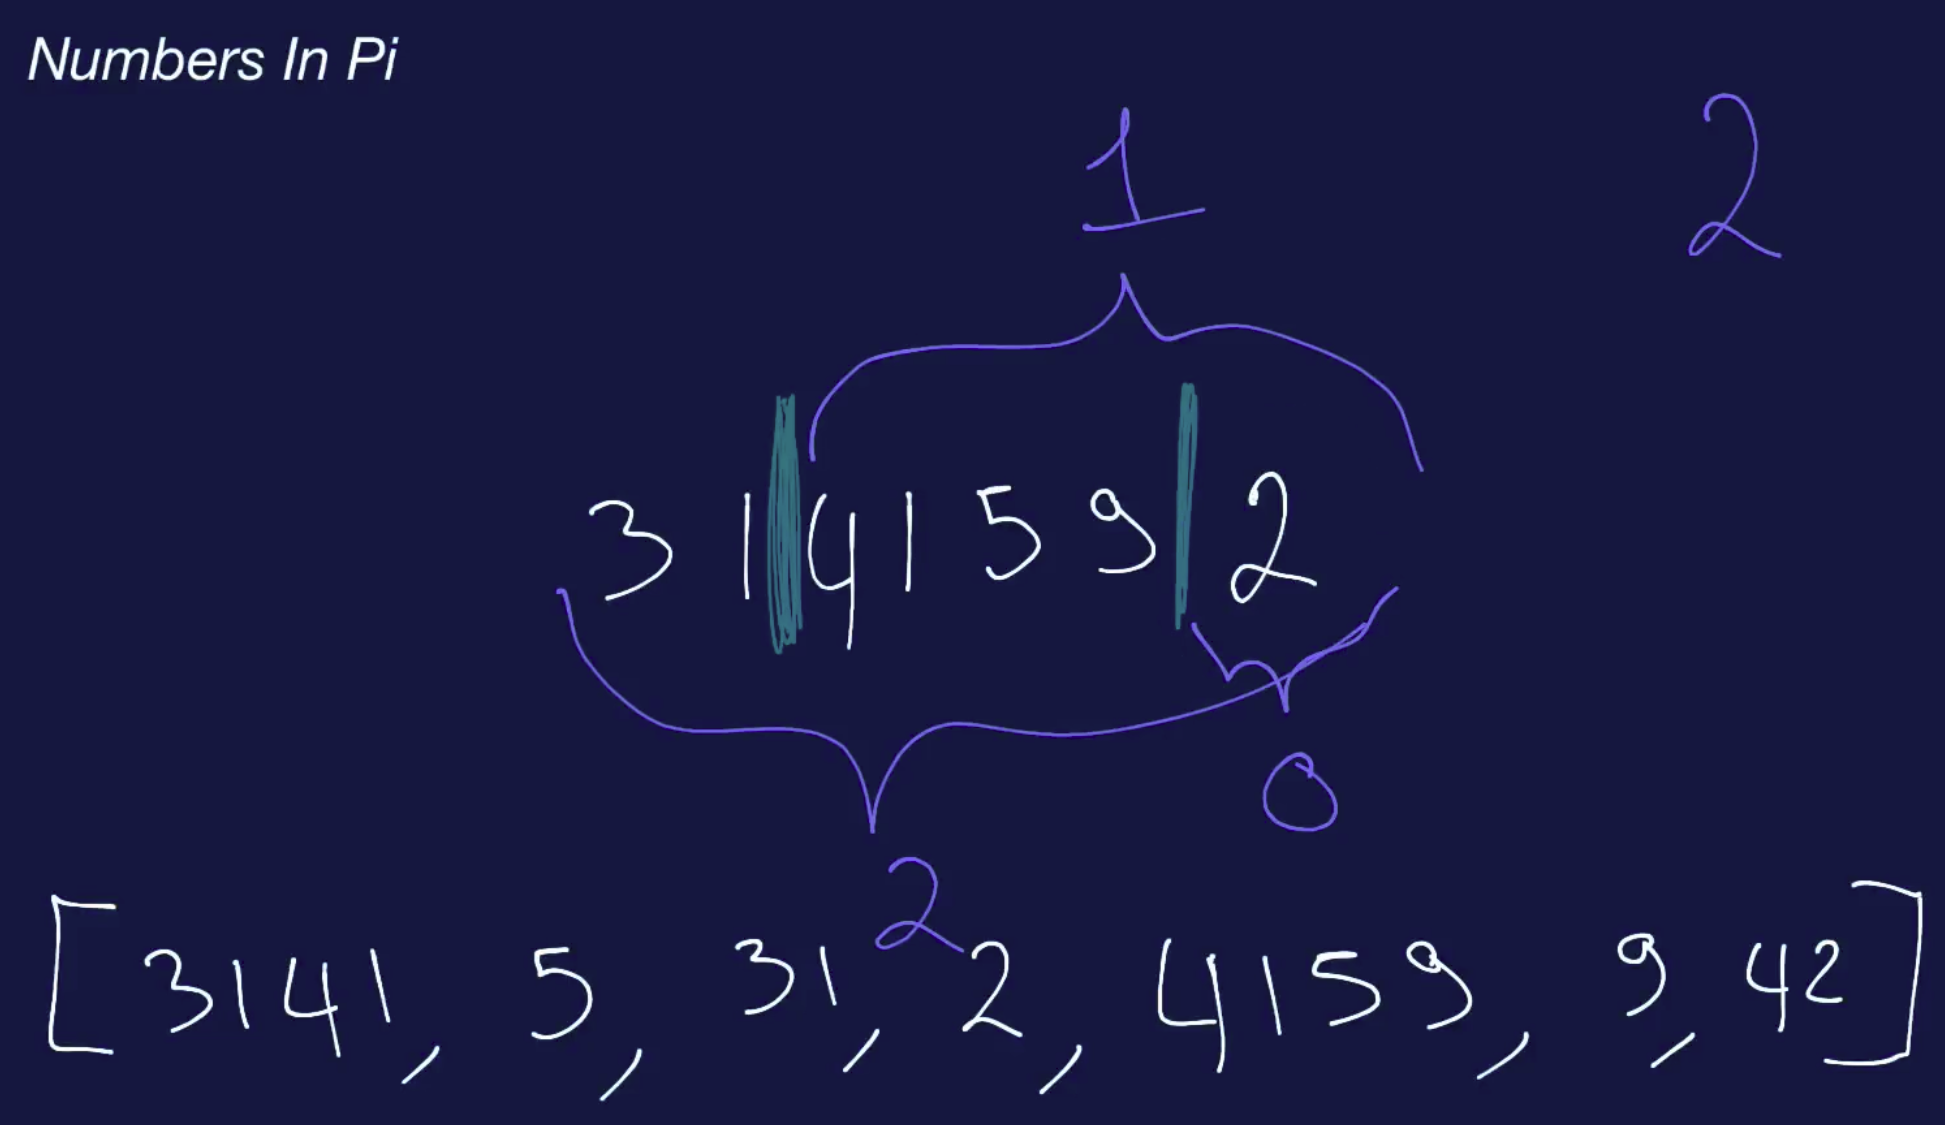 Numbers In Pi
1 2
3 1 4 1 5 9 2
0
2
[3141, 5, 31, 2, 4159, 9, 42]